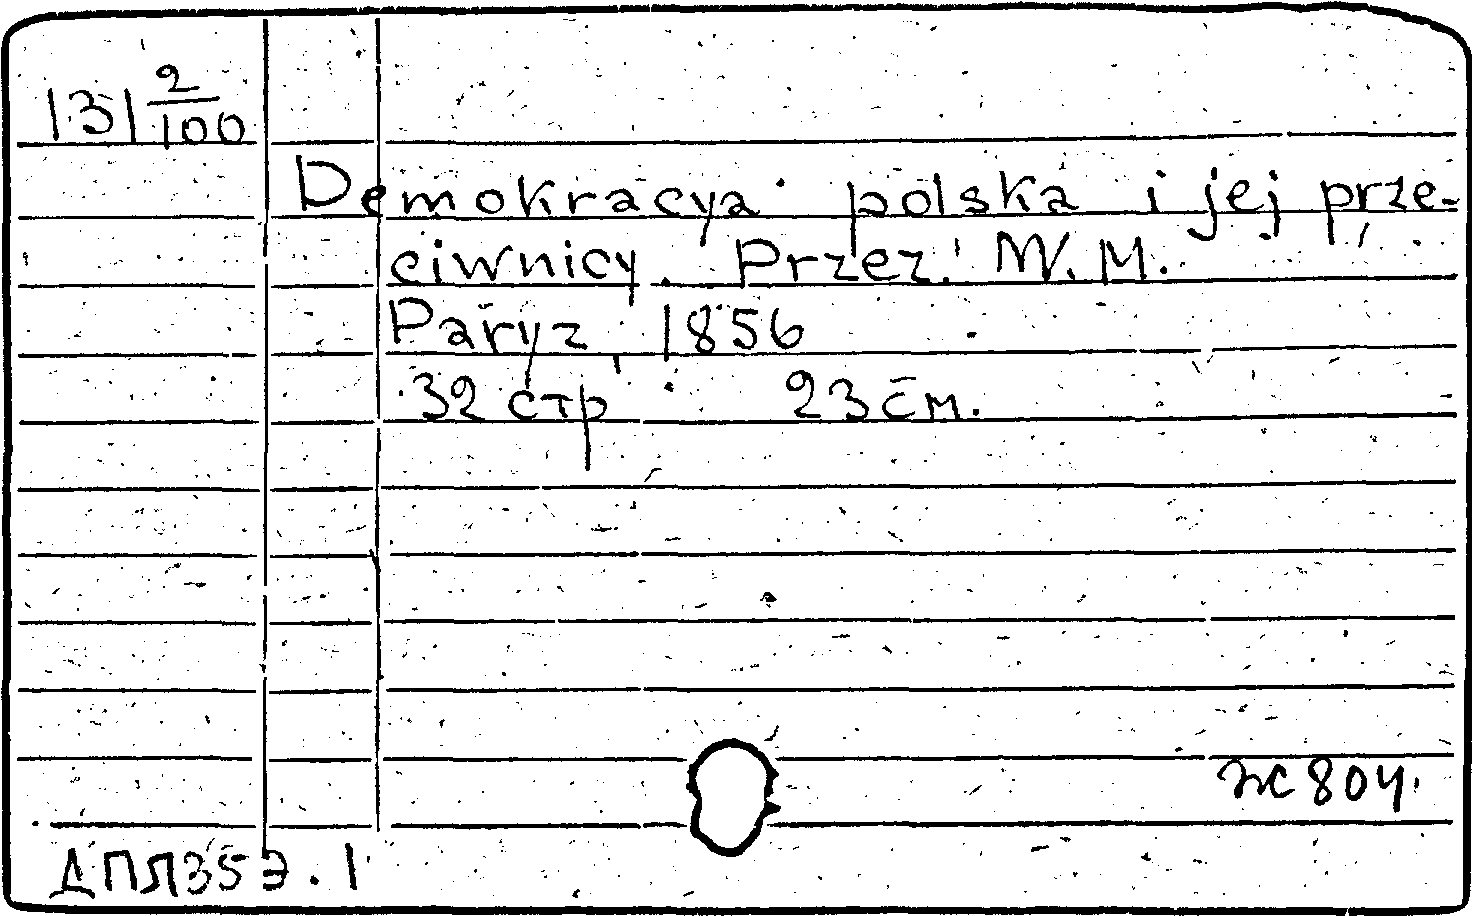 131 2/100
Demokracya polska i jej prze-
ciwnicy. Przez. W. M.
Paryz, 1856
32 стр 23 см.
ж 804.
ДПЛ35Э.1